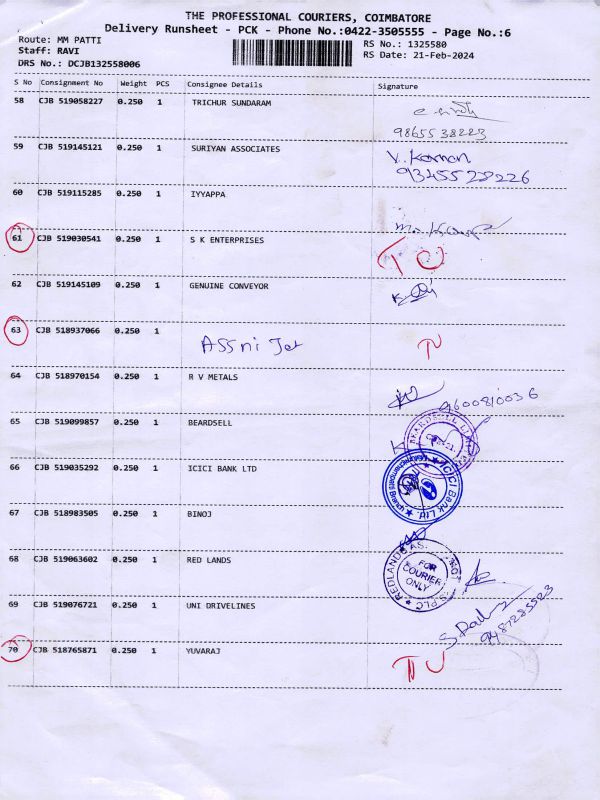 THE PROFESSIONAL COURIERS, COIMBATORE
Delivery Runsheet - PCK - Phone No.:0422-3505555 - Page No.:6
Route: MM PATTI
RS No.: 1325580
Staff: RAVI
RS Date: 21-Feb-2024
DRS No.: DCJB132558006
S No Consignment No Weight PCS Consignee Details Signature
58 CJB 519058227 0.250 1 TRICHUR SUNDARAM
9865538223
59 CJB 519145121 0.250 1 SURIYAN ASSOCIATES
60 CJB 519115285 0.250 1 IYYAPPA
61 CJB 519030541 0.250 1 S K ENTERPRISES
62 CJB 519145109 0.250 1 GENUINE CONVEYOR
63 CJB 518937066 0.250 1
64 CJB 518970154 0.250 1 R V METALS
9600810036
65 CJB 519099857 0.250 1 BEARDSELL
66 CJB 519035292 0.250 1 ICICI BANK LTD
ICICI Bank Ltd.
67 CJB 518983505 0.250 1 BINOJ
68 CJB 519063602 0.250 1 RED LANDS
FOR COURIER ONLY
69 CJB 519076721 0.250 1 UNI DRIVELINES
70 CJB 518765871 0.250 1 YUVARAJ